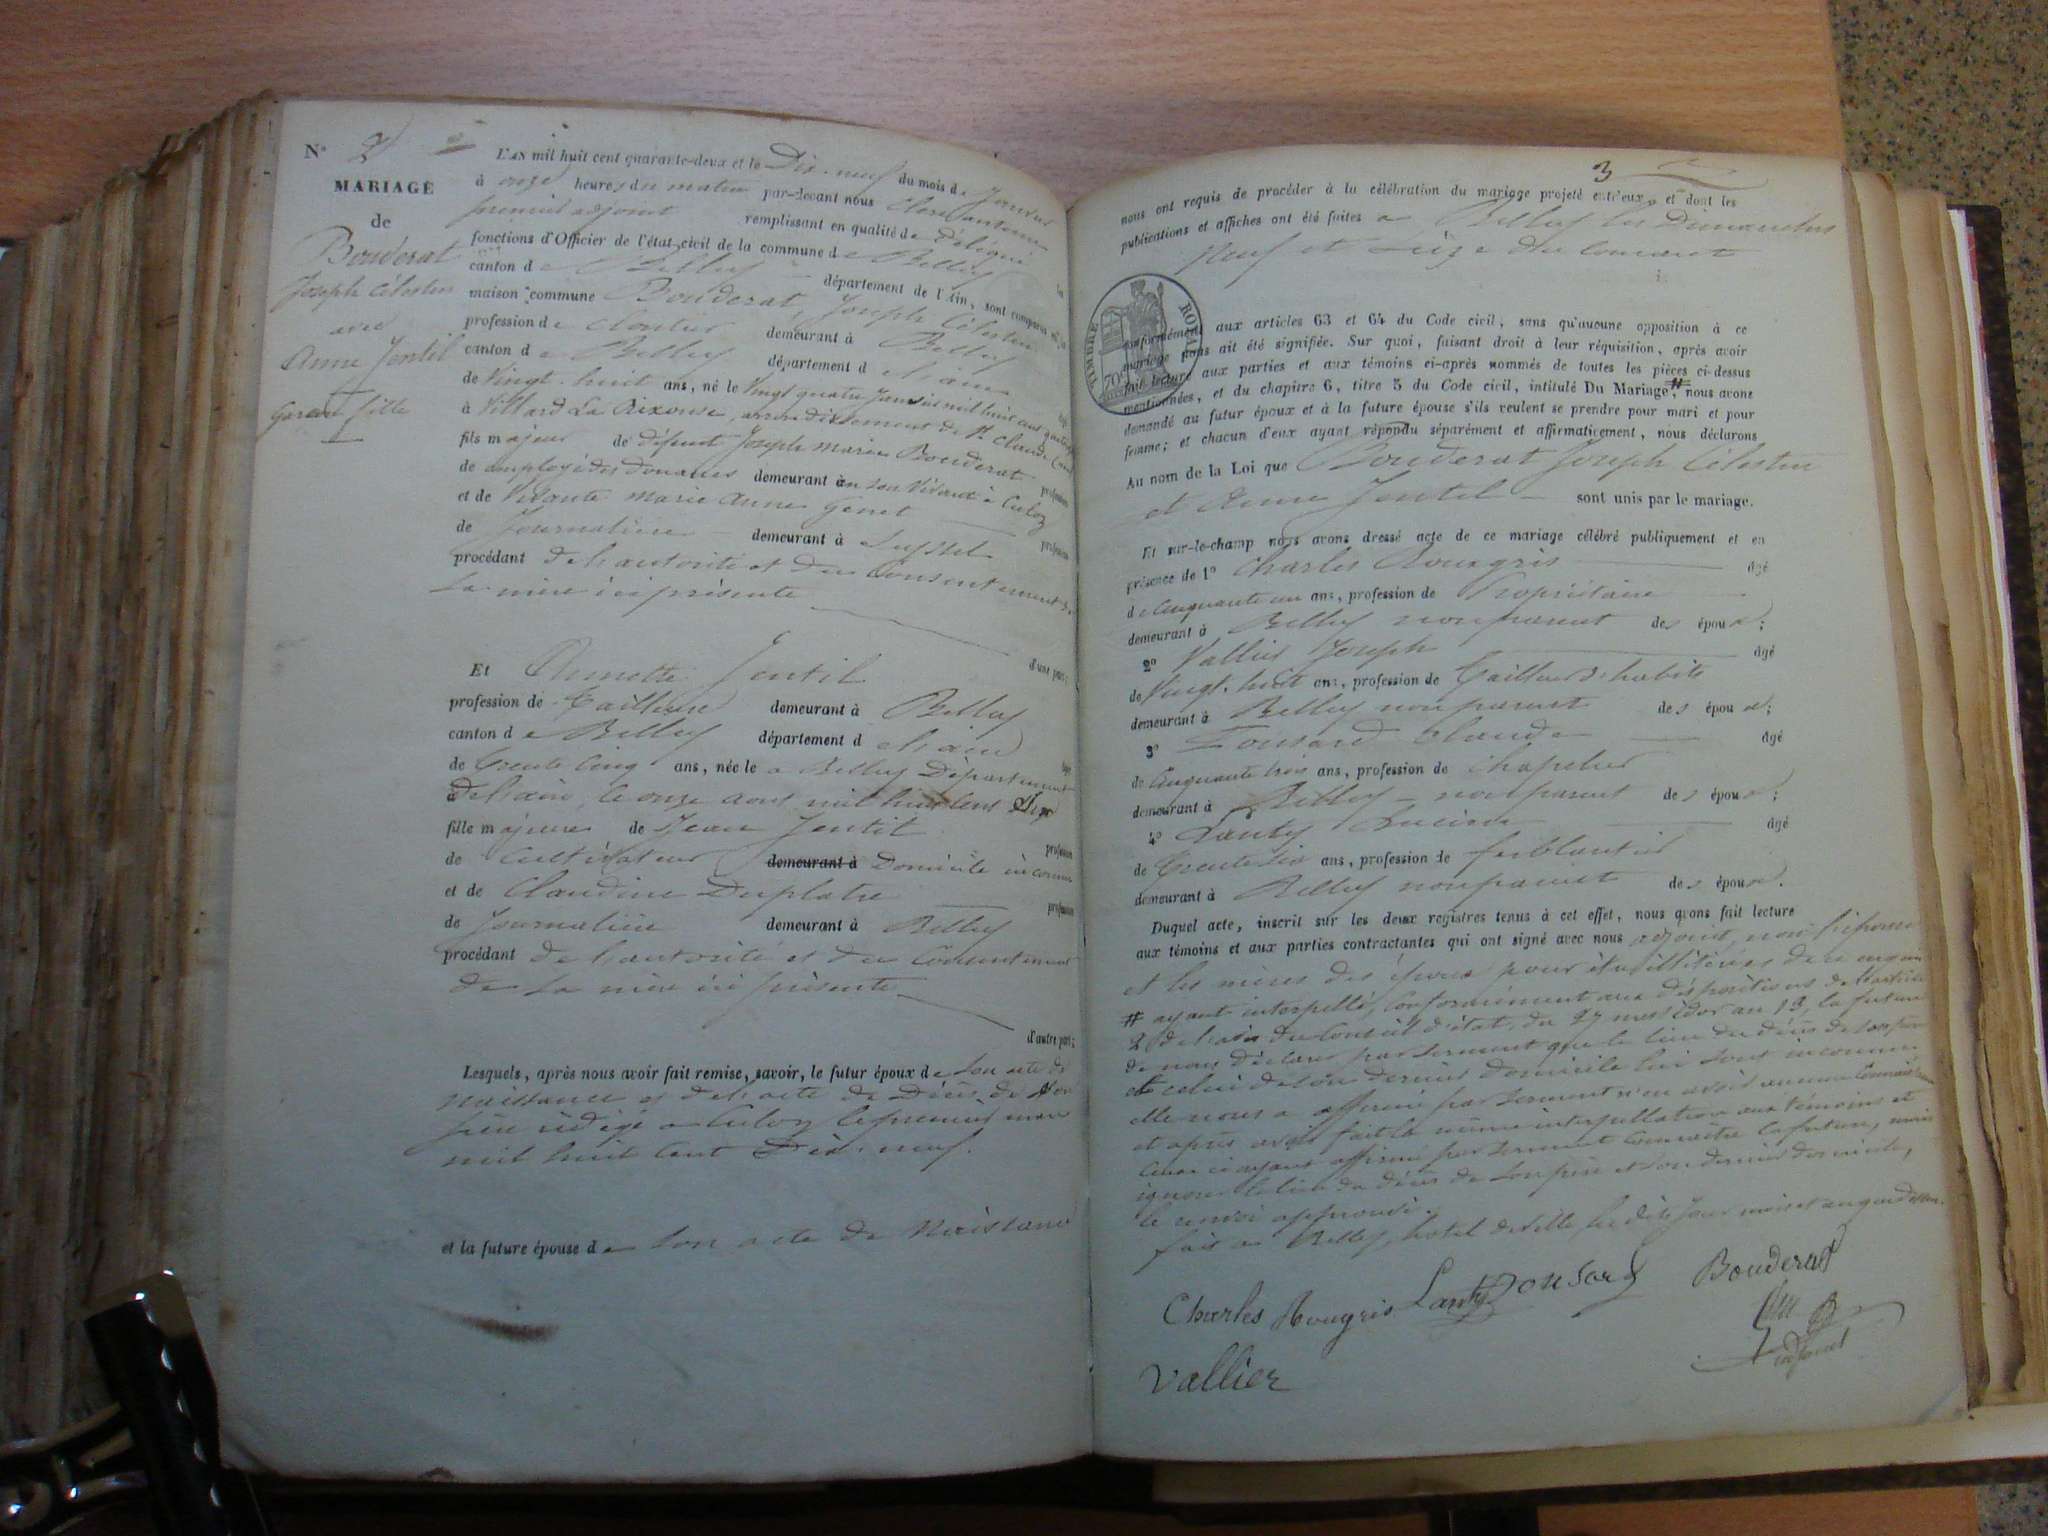 N° 2
MARIAGE
de
Bouderat
Joseph Célestin
avec
Anne Jentil
Garçon fille
L'AN mil huit cent quarante-deux et le Dix-neuf du mois de Janvier
à onze heures du matin par-devant nous
premier adjoint remplissant en qualité de délégué
fonctions d'Officier de l'état civil de la commune de Belley
canton de Belley département de l'Ain, sont comparus
maison commune Bouderat, Joseph Célestin
profession de cloutier demeurant à Belley
canton de Belley département de l'ain
de Vingt-huit ans, né le Vingt quatre Janvier mil huit cent
à Villard La Rixouse, arrondissement de St Claude
fils majeur de défunt Joseph Marie Bouderat profession
de employé des douanes demeurant en son vivant à Culoz
et de Vivante marie anne Genet profession
de Journalière demeurant à Seyssel
procédant de l'autorité et du Consentement de
La mère ici présente
d'une part;
Et Annette Jentil
profession de Tailleuse demeurant à Belley
canton de Belley département de l'ain
de Trente Cinq ans, née le a Belley Département
de l'ain, le onze aout mil huit cent Six
fille majeure de Jean Jentil profession
de Cultivateur demeurant à Domicile inconnu
et de Claudine Duplatre profession
de Journalière demeurant à Belley
procédant de l'autorité et du Consentement
de La mère ici présente
d'autre part;
Lesquels, après nous avoir fait remise, savoir, le futur époux de Son acte de
naissance et de l'acte de Décès de Son
père rédigé a Culoz le premier mars
mil huit cent Dix-neuf.
et la future épouse de Son acte de Naissance
3
nous ont requis de procéder à la célébration du mariage projeté entr'eux, et dont les
publications et affiches ont été faites a Belley les Dimanches
Neuf et Seize du Courant
TIMBRE ROYAL
70c
conformément aux articles 63 et 64 du Code civil, sans qu'aucune opposition à ce
mariage nous ait été signifiée. Sur quoi, faisant droit à leur réquisition, après avoir
fait lecture aux parties et aux témoins ci-après nommés de toutes les pièces ci-dessus
mentionnées, et du chapitre 6, titre 5 du Code civil, intitulé Du Mariage #, nous avons
demandé au futur époux et à la future épouse s'ils veulent se prendre pour mari et pour
femme; et chacun d'eux ayant répondu séparément et affirmativement, nous déclarons
Au nom de la Loi que Bouderat Joseph Célestin
et Anne Jentil sont unis par le mariage.
Et sur-le-champ nous avons dressé acte de ce mariage célébré publiquement et en
présence de 1° Charles Rougris âgé
de Cinquante un ans, profession de Propriétaire
demeurant à Belley non parent des époux;
2° Vallier Joseph âgé
de Vingt-huit ans, profession de Tailleur d'habits
demeurant à Belley non parent des époux;
3° Ponsard Claude âgé
de Cinquante trois ans, profession de Chapelier
demeurant à Belley non parent des époux;
4° Lanty âgé
de Trente Six ans, profession de ferblantier
demeurant à Belley non parent des époux.
Duquel acte, inscrit sur les deux registres tenus à cet effet, nous avons fait lecture
aux témoins et aux parties contractantes qui ont signé avec nous adjoint, non l'épouse
et les mères des époux pour être illitérées de ce enquis
# ayant interpellé, Conformément aux dispositions de l'article
2 de l'avis du Conseil d'état, du 27 messidor an 13, la future
de nous déclarer par serment que le lieu du décès de son père
et celui de son dernier domicile lui sont inconnus
elle nous a affirmé par serment n'en avoir aucune Connaissance
et après avoir fait la même interpellation aux témoins et
Ceux ci ayant affirmé par serment Connaitre la future, mais
ignorer le lieu du décès de son père et son dernier domicile,
le renvoi approuvé.
fait a Belley, hotel de Ville, les dits jour mois et an que dessus.
Charles Rougris Lanty Ponsard Bouderat
Vallier adjoint